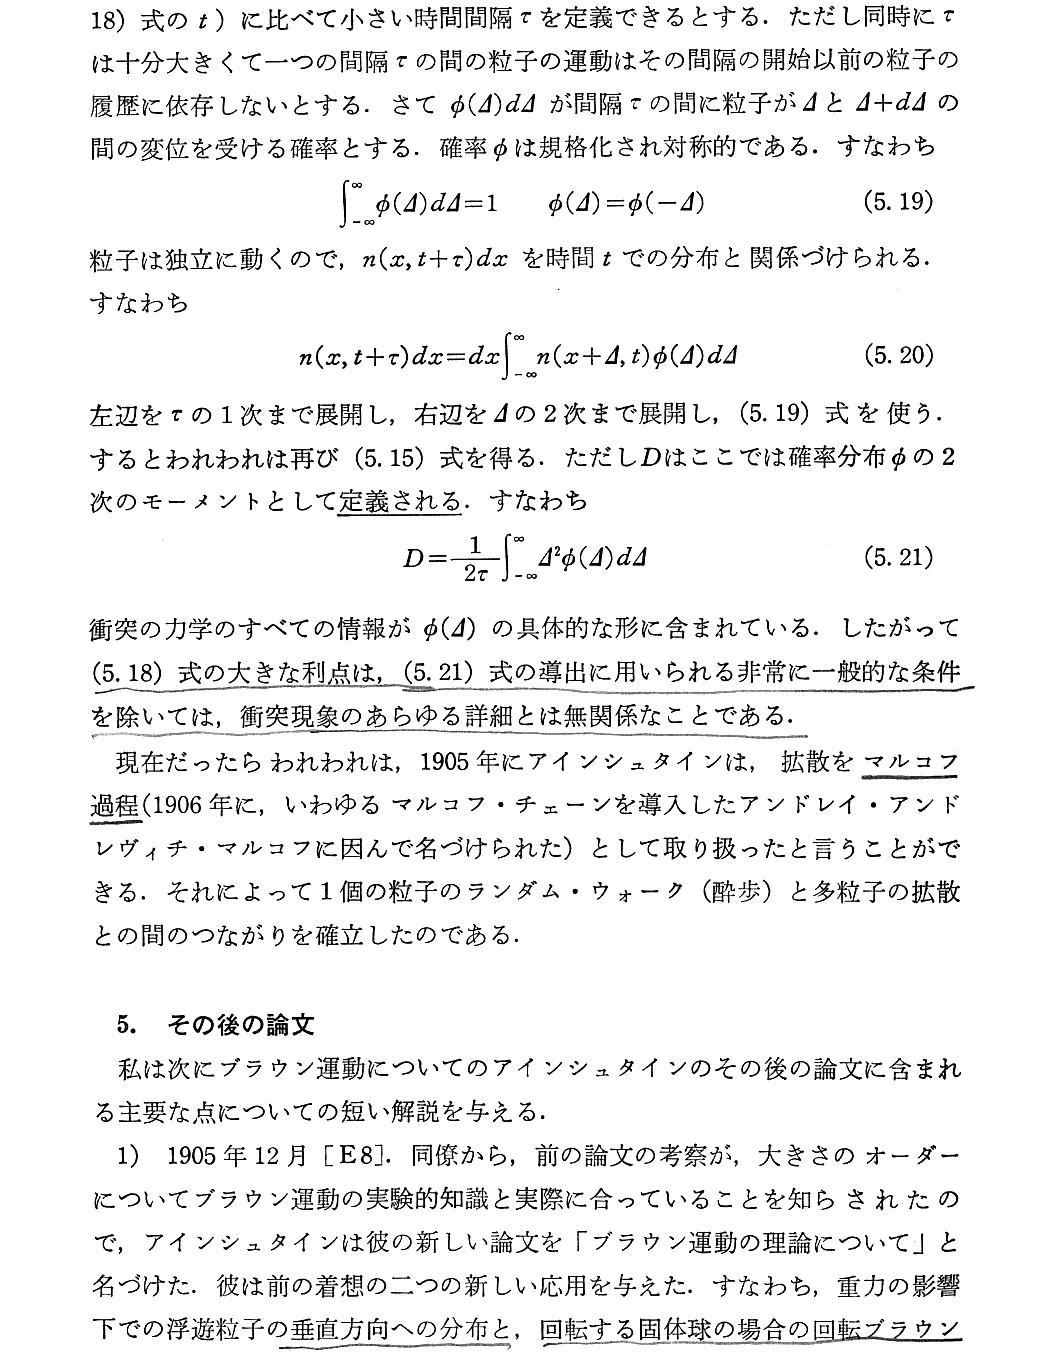 18) 式の t ) に比べて小さい時間間隔 τ を定義できるとする．ただし同時に τ
は十分大きくて一つの間隔 τ の間の粒子の運動はその間隔の開始以前の粒子の
履歴に依存しないとする．さて ϕ(Δ)dΔ が間隔 τ の間に粒子が Δ と Δ+dΔ の
間の変位を受ける確率とする．確率 ϕ は規格化され対称的である．すなわち
∫_{-∞}^{∞} ϕ(Δ)dΔ=1　　ϕ(Δ)=ϕ(−Δ)　　(5. 19)
粒子は独立に動くので，n(x, t+τ)dx を時間 t での分布と関係づけられる．
すなわち
n(x, t+τ)dx=dx∫_{-∞}^{∞} n(x+Δ, t)ϕ(Δ)dΔ　　(5. 20)
左辺を τ の 1 次まで展開し，右辺を Δ の 2 次まで展開し，(5. 19) 式を使う．
するとわれわれは再び (5. 15) 式を得る．ただしDはここでは確率分布 ϕ の 2
次のモーメントとして定義される．すなわち
D=\frac{1}{2τ}∫_{-∞}^{∞} Δ²ϕ(Δ)dΔ　　(5. 21)
衝突の力学のすべての情報が ϕ(Δ) の具体的な形に含まれている．したがって
(5. 18) 式の大きな利点は，(5. 21) 式の導出に用いられる非常に一般的な条件
を除いては，衝突現象のあらゆる詳細とは無関係なことである．
現在だったらわれわれは，1905 年にアインシュタインは，拡散をマルコフ
過程(1906 年に，いわゆるマルコフ・チェーンを導入したアンドレイ・アンド
レヴィチ・マルコフに因んで名づけられた) として取り扱ったと言うことがで
きる．それによって 1 個の粒子のランダム・ウォーク（酔歩）と多粒子の拡散
との間のつながりを確立したのである．
5.　その後の論文
私は次にブラウン運動についてのアインシュタインのその後の論文に含まれ
る主要な点についての短い解説を与える．
1)　1905 年 12 月［E8］．同僚から，前の論文の考察が，大きさのオーダー
についてブラウン運動の実験的知識と実際に合っていることを知らされたの
で，アインシュタインは彼の新しい論文を「ブラウン運動の理論について」と
名づけた．彼は前の着想の二つの新しい応用を与えた．すなわち，重力の影響
下での浮遊粒子の垂直方向への分布と，回転する固体球の場合の回転ブラウン